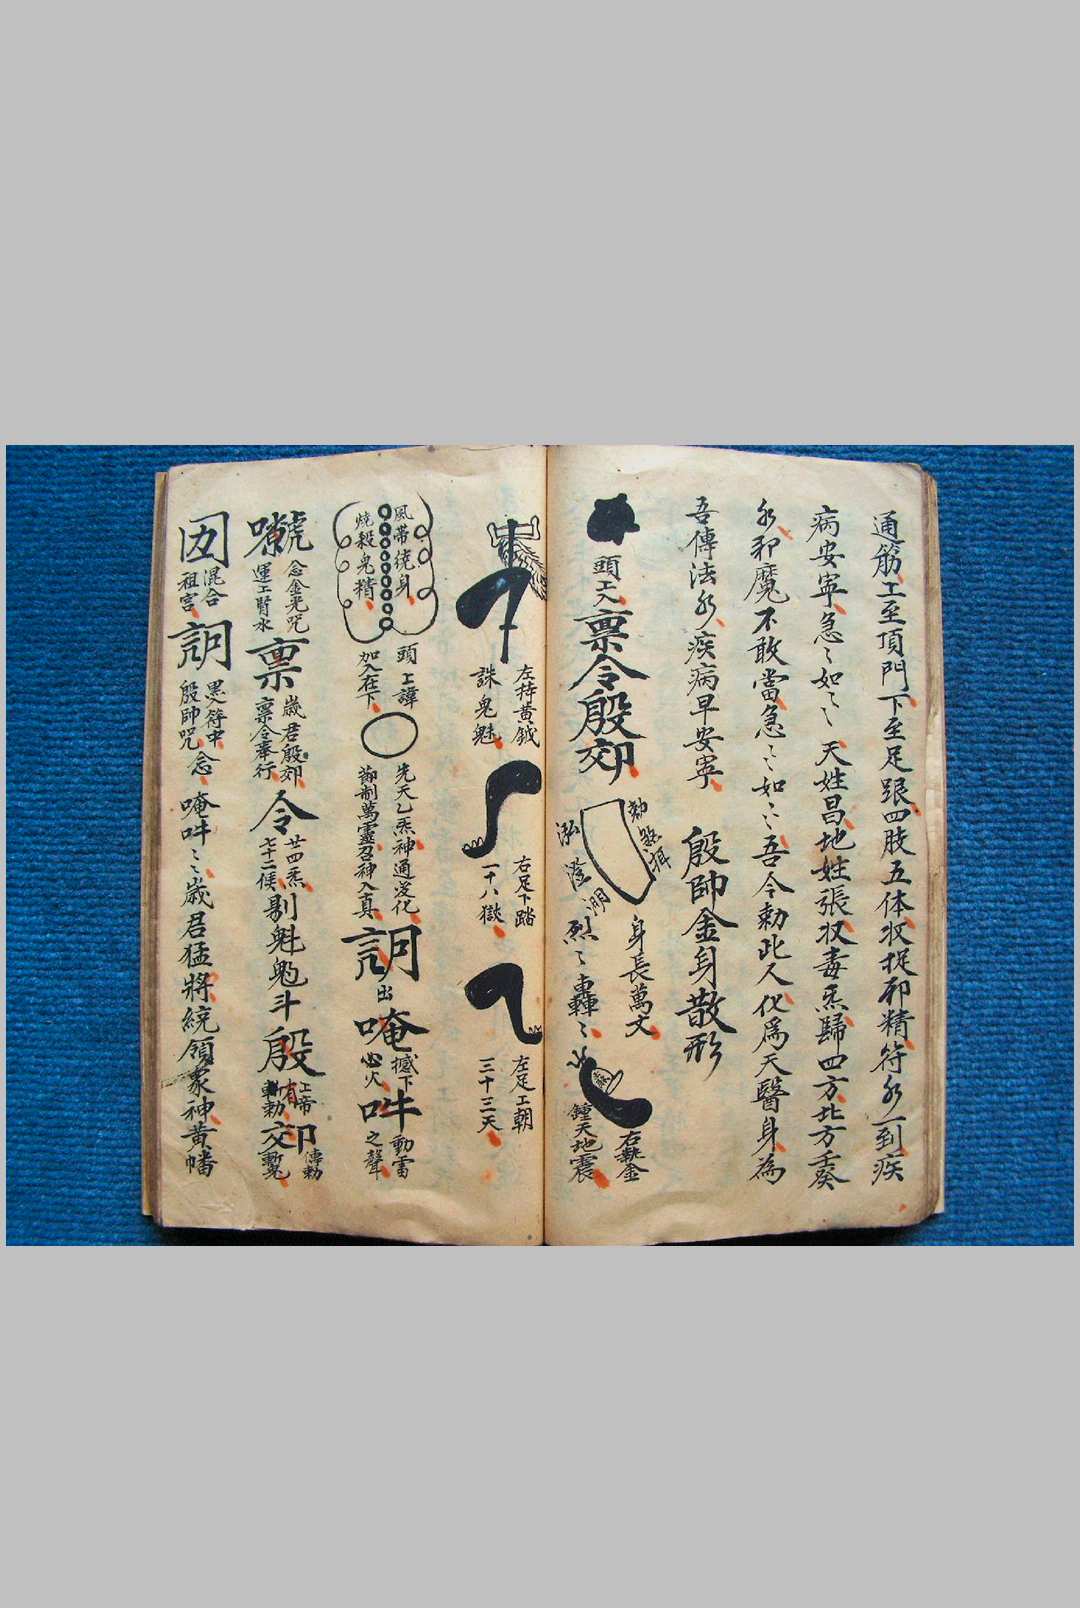 通筋上至頂門下至足跟四肢五体収捉邪精符水一到疾
病安寧急〻如〻〻天姓昌地姓張収毒炁歸四方北方壬癸
水邪魔不敢當急〻如〻〻吾令勅此人化為天醫身為
吾傳法水疾病早安寧
殷帥金身散形
頭上入
稟令殷郊
泓澄湖
身長萬丈
烈〻轟〻
右執金
鍾天地震
左持黄鉞
誅鬼魅
右足下踏
一十八獄
左足上朝
三十三天
風帶繞身
燒殺鬼精
頭上諱
加入在下
先天乙炁神通變化
節制萬靈召神入真
訶
出
唵
撼下
心火
吽
動雷
之聲
念金光咒
運上腎水
稟
歲君殷郊
稟令奉行
令
廿四炁
七十二候
魁魀斗
殷
上帝
有勅
郊
傳勅
混合
祖宮
訶
黑父符中
殷帥咒念
唵吽〻〻歲君猛將統領家神黄幡